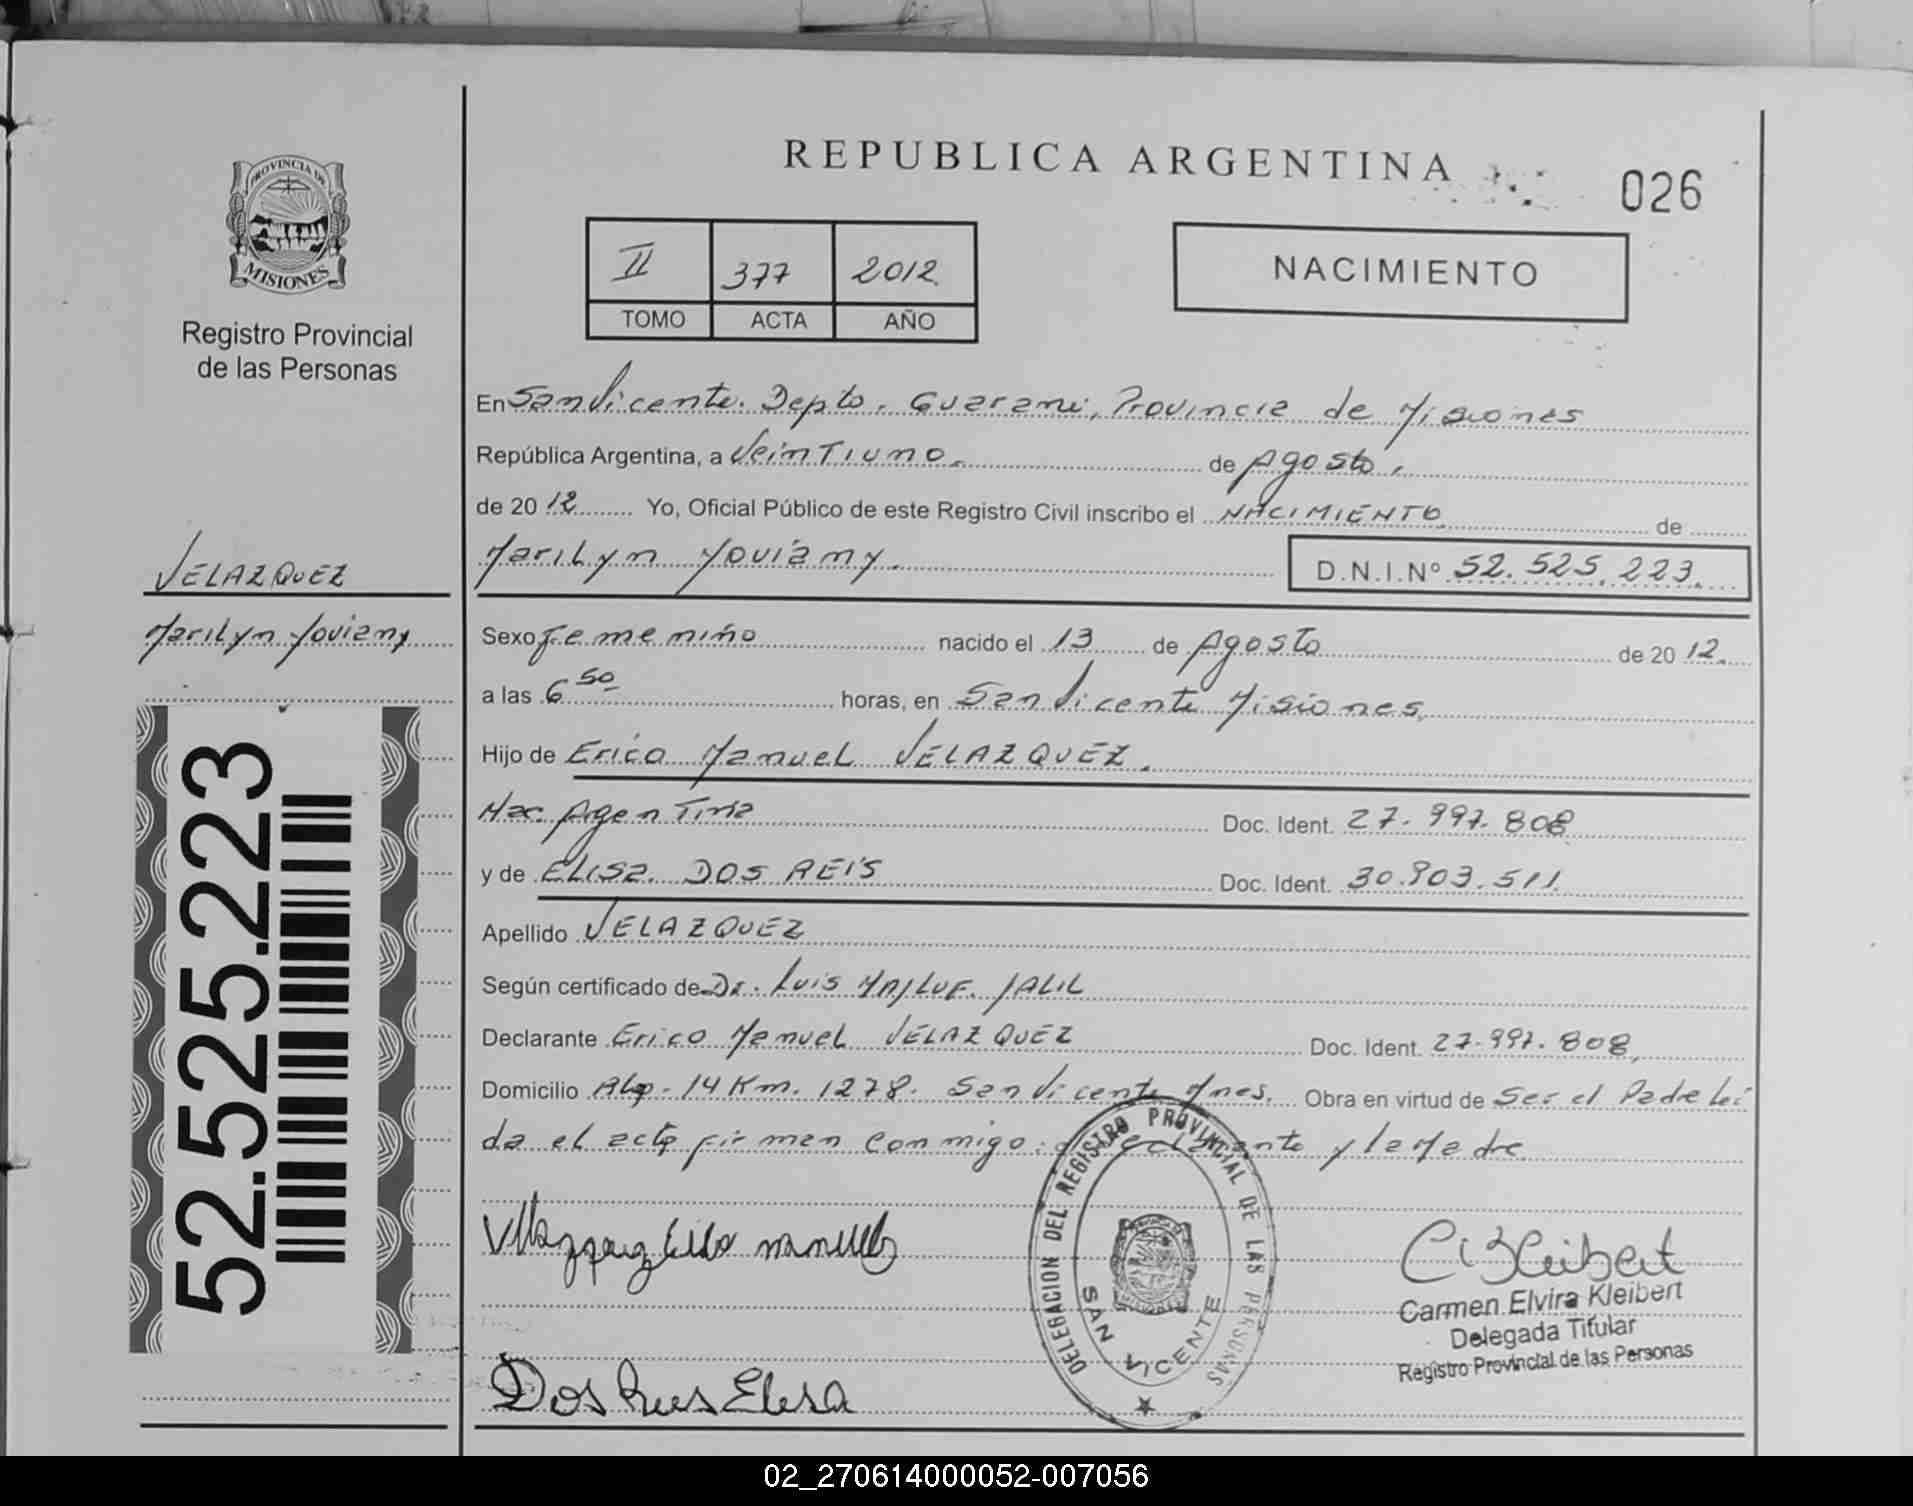 REPUBLICA ARGENTINA
026
PROVINCIA DE
MISIONES
Registro Provincial
de las Personas
II 377 2012
TOMO ACTA AÑO
NACIMIENTO
En San Vicente. Depto. Guarani, Provincia de Misiones
República Argentina, a Veintiuno. de Agosto.
de 2012 Yo, Oficial Público de este Registro Civil inscribo el NACIMIENTO de
Marilyn Yoviany.
D.N.I.Nº 52.525.223.
VELAZQUEZ
Marilyn Yoviany
Sexo Femenino nacido el 13 de Agosto de 2012.
a las 6 50 horas, en San Vicente Misiones.
Hijo de Erico Manuel VELAZQUEZ.
Nac. Doc. Ident. 27.997.808
y de Elisa DOS REIS Doc. Ident. 30.903.511.
Apellido VELAZQUEZ
Según certificado de Dr. Luis MAJLUF JALIL
Declarante Erico Manuel VELAZQUEZ Doc. Ident. 27.997.808,
Domicilio 14 Km. 1278. San Vicente Mnes. Obra en virtud de Ser el Padre Leí
da el acta firman conmigo: declarante y la Madre
52.525.223
DELEGACION DEL REGISTRO PROVINCIAL DE LAS PERSONAS
SAN VICENTE
Carmen Elvira Kleibert
Delegada Titular
Registro Provincial de las Personas
Dos Reis Elisa
02_270614000052-007056